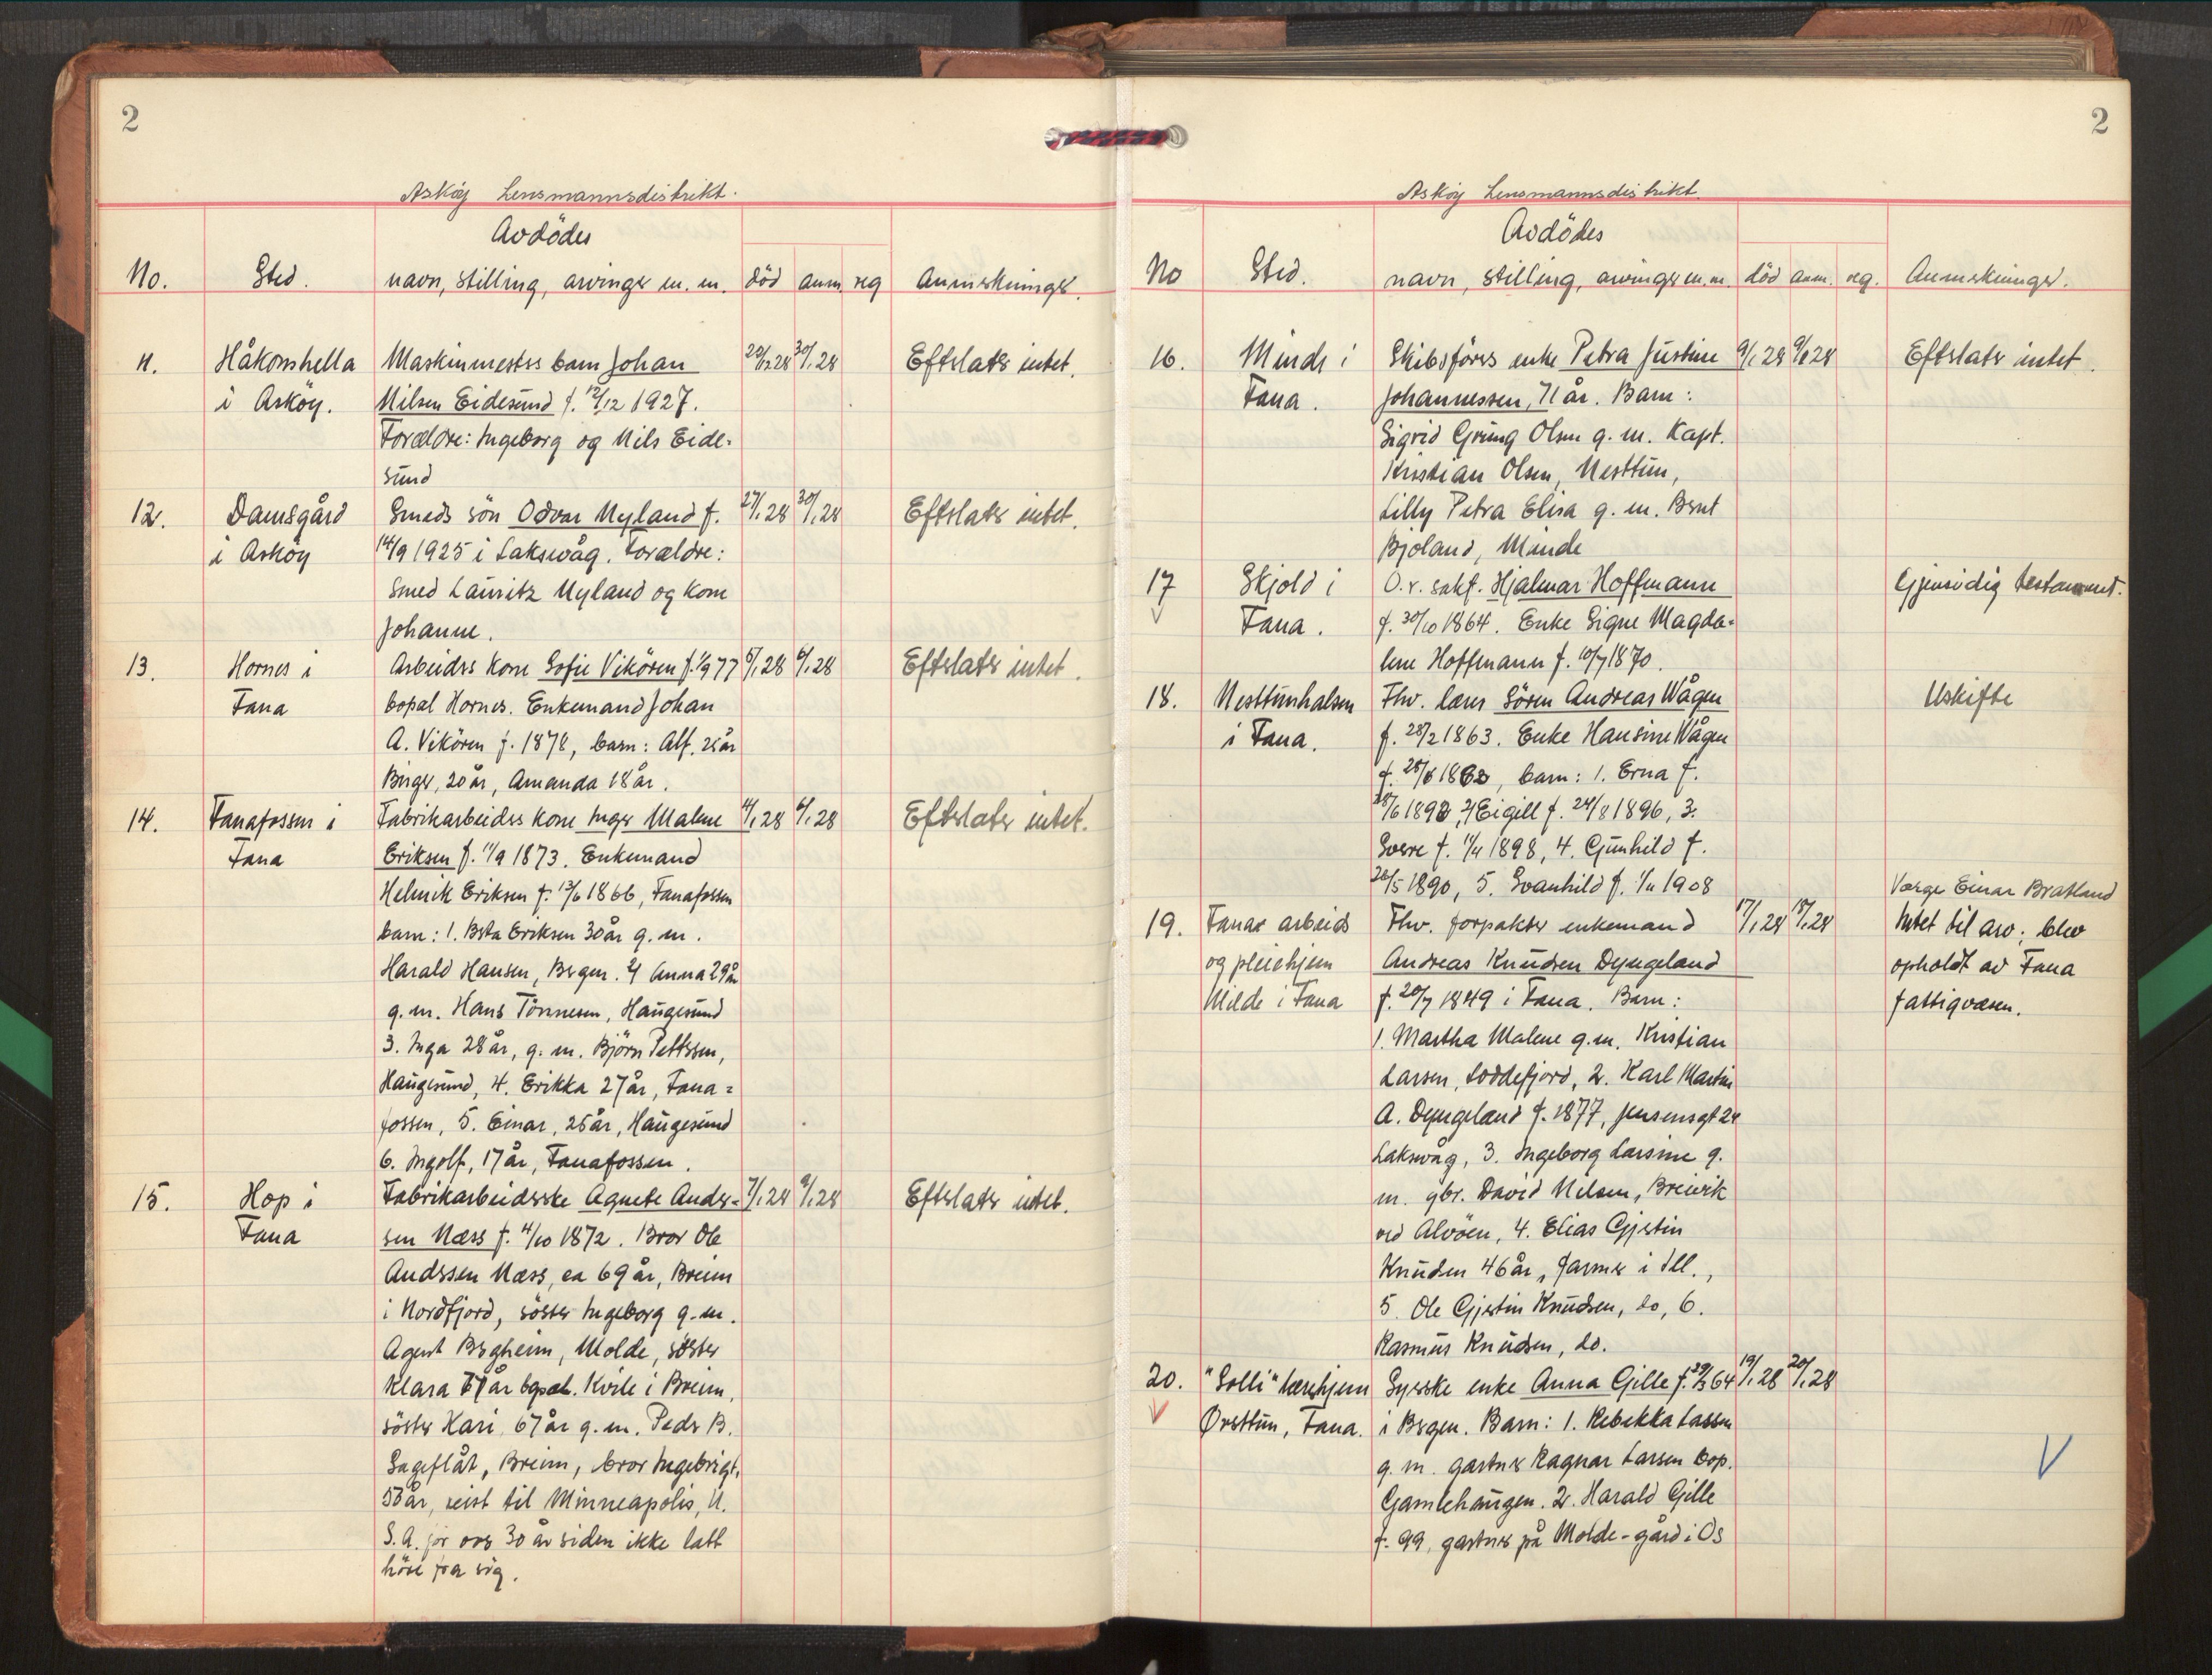 2
Asköy Lensmannsdistrikt.
Avdödes
No. Sted. navn, stilling, arvinger m. m. död anm. reg Anmerkninger.
11. Håkonshella Maskinmesters barn Johan 30/1 28 Efterlater intet.
i Asköy. Nilsen Eidesund f. 12/12 1927.
Forældre: Ingeborg og Nils Eide-
sund
12. Damsgård Smeds sön Odvar Nyland f. 27/1 28 30/1 28 Efterlater intet.
i Asköy 14/9 1925 i Laksevåg. Forældre:
Smed Lauritz Nyland og kone
Johanne.
13. Hornes i Arbeiders kone Sofie Vikören f. 1/9 77 5/1 28 6/1 28 Efterlater intet.
Fana bopæl Hornes. Enkemand Johan
A. Vikören f. 1878, barn: Alf, år
Birger, 20 år, Amanda 18 år.
14. Fanafossen i Fabrikarbeiders kone Inger Malene 4/1 28 6/1 28 Efterlater intet.
Fana Eriksen f. 11/9 1873. Enkemand
Helmik Eriksen f. 13/6 1866, Fanafossen
barn: 1. Berta Eriksen 30 år g. m.
Harald Hansen, Bergen. 2) Anna 29 år
g. m. Hans Tönnesen, Haugesund
3. Inga 28 år, g. m. Björn Pettersen,
Haugesund, 4. Erikka 27 år, Fana=
fossen, 5. Einar, 25 år, Haugesund
6. Ingolf, 17 år, Fanafossen.
15. Hop i Fabrikarbeiderske Agnete Ander= 7/1 28 9/1 28 Efterlater intet.
Fana sen Næss f. 4/10 1872. Bror Ole
Anderssen Næss, ca 69 år, Breim
i Nordfjord, söster Ingeborg g. m.
Agent Bergheim, Molde, söster
Klara år bopæl. Kvile i Breim,
söster Kari, 67 år g. m. Peder B.
Sageflåt, Breim, bror Ingebrigt,
53 år, reist til Minneapolis, U.
S. A. for over 30 år siden ikke latt
höre fra sig.
2
Asköy Lensmannsdistrikt.
Avdödes
No Sted. navn, stilling, arvinger m. m. död anm. reg. Anmerkninger.
16. Minde i Skibsförers enke Petra Justine 9/1 28 9/1 28 Efterlater intet.
Fana. Johannessen, 71 år. Barn:
Sigrid Grung Olsen g. m. Kapt.
Kristian Olsen, Nesttun,
Lilly Petra Elisa g. m. Bernt
Bjoland, Minde
17 Skjold i O. r. sakf. Hjalmar Hoffmann Gjensidig testament.
Fana. f. 30/10 1864. Enke Signe Magda=
lene Hoffmann f. 10/7 1870.
18. Nesttunhalsen Fhv. lærer Sören Andreas Wågen Uskifte
i Fana. f. 28/2 1863. Enke Hansine Wågen
f. barn: 1. Erna f.
2) Eigill f. 24/8 1896, 3.
Sverre f. 11/4 1898, 4. Gunhild f.
28/5 1890, 5. Svanhild f. 1/11 1908
Værge Einar Bratland
19. Fanas arbeids Fhv. forpakter enkemand 17/1 28 18/1 28 Intet til arv; blev
og pleiehjem Andreas Knudsen Dyngeland opholdt av Fana
Milde i Fana f. 20/7 1849 i Fana. Barn: fattigvæsen.
1. Martha Malene g. m. Kristian
Larsen, Loddefjord, 2. Karl Martin
A. Dyngeland f. 1877, Jensensgt 24
Laksevåg, 3. Ingeborg Larsine g.
m. gbr. David Nilsen, Breivik
ved Alvöen, 4. Elias Gjertin
Knudsen 46 år, farmer i Ill.,
5. Ole Gjertin Knudsen, do, 6.
Rasmus Knudsen, do.
20. "Solli" lærehjem Syerske enke Anna Gille f. 64 19/1 28 20/1 28
Örsttun, Fana. i Bergen. Barn: 1. Rebekka Lassen
g. m. gartner Ragnar Larsen bop.
Gamlehaugen. 2. Harald Gille
f. 99, gartner på Molde-gård i Os